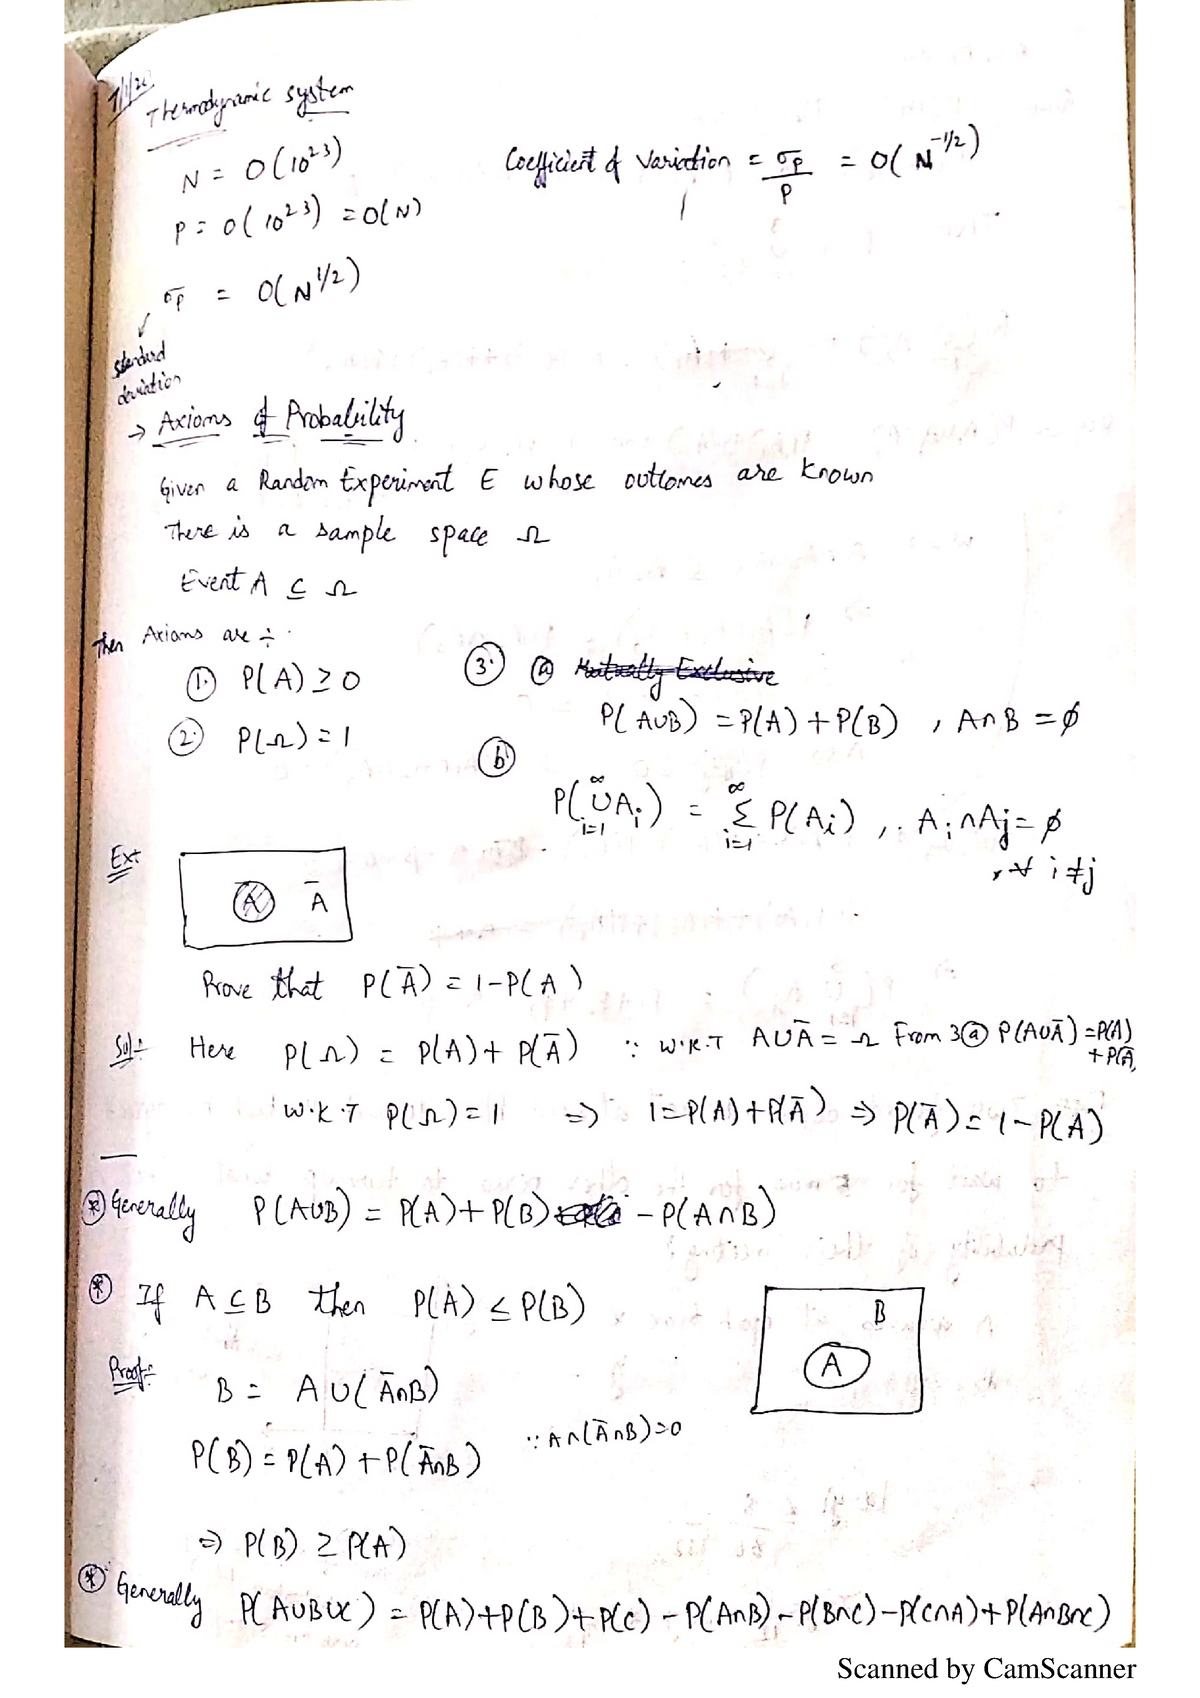 Thermodynamic system
N = O(10²³)
P = O(10²³) = O(N)
σp = O(N^1/2)
standard
deviation
Coefficient of variation = σp/P = O(N^-1/2)
→ Axioms of Probability
Given a Random Experiment E whose outcomes are known
There is a sample space Ω
Event A ⊆ Ω
Then Axioms are ÷
1. P(A) ≥ 0
2. P(Ω) = 1
3. (a) Mutually Exclusive
P(A∪B) = P(A) + P(B) , A∩B = ϕ
(b)
P(∞∪i=1 Ai) = ∞Σi=1 P(Ai) , Ai∩Aj = ϕ
, ∀ i≠j
Ex:
A Ā
Prove that P(Ā) = 1-P(A)
Sol:- Here P(Ω) = P(A) + P(Ā) ∵ W.K.T A∪Ā = Ω From 3(a) P(A∪Ā) = P(A)
+ P(Ā)
W.K.T P(Ω) = 1 ⇒ 1 = P(A) + P(Ā) ⇒ P(Ā) = 1 - P(A)
* Generally P(A∪B) = P(A) + P(B) - P(A∩B)
* If A ⊆ B then P(A) ≤ P(B)
B
A
Proof:-
B = A∪(Ā∩B)
P(B) = P(A) + P(Ā∩B) ∵ A∩(Ā∩B)=0
⇒ P(B) ≥ P(A)
* Generally P(A∪B∪C) = P(A)+P(B)+P(C) - P(A∩B) - P(B∩C) - P(C∩A) + P(A∩B∩C)
Scanned by CamScanner